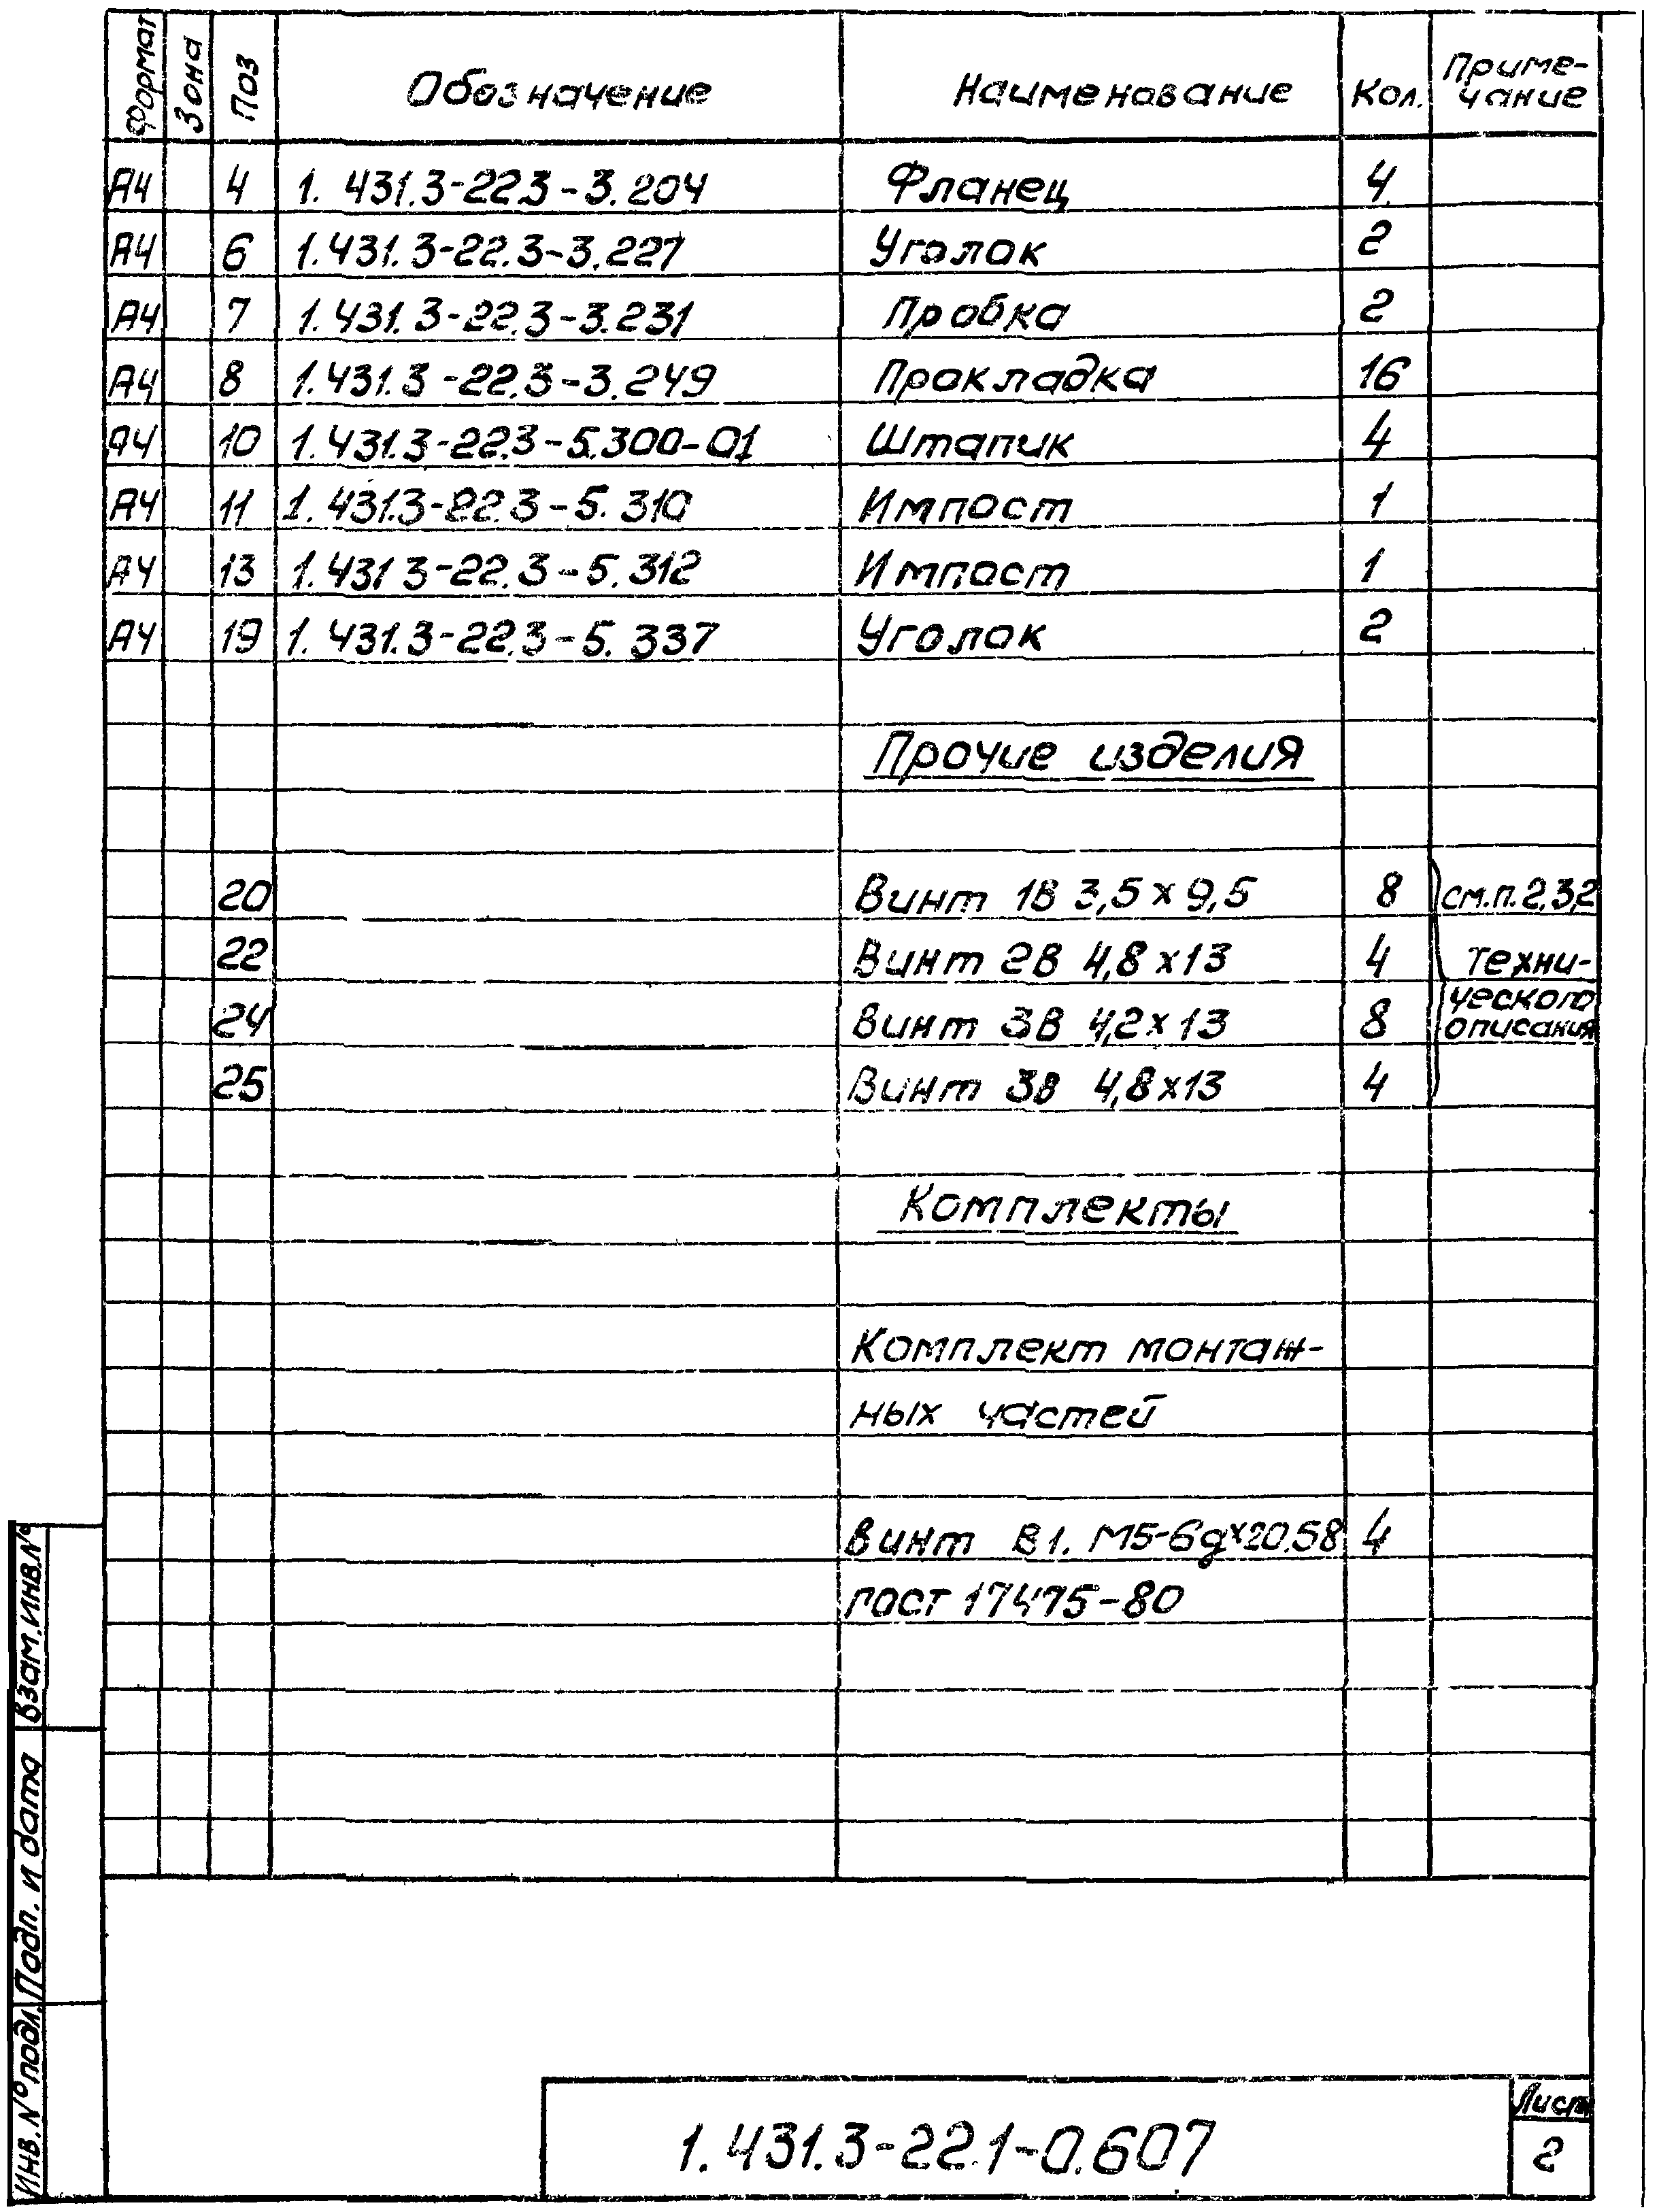 Формат Зона Поз Обозначение Наименование Кол. Приме-
чание
А4 4 1.431.3-22.3-3.204 Фланец 4
А4 6 1.431.3-22.3-3.227 Уголок 2
А4 7 1.431.3-22.3-3.231 Пробка 2
А4 8 1.431.3-22.3-3.249 Прокладка 16
А4 10 1.431.3-22.3-5.300-01 Штапик 4
А4 11 1.431.3-22.3-5.310 Импост 1
А4 13 1.431 3-22.3-5.312 Импост 1
А4 19 1.431.3-22.3-5.337 Уголок 2
Прочие изделия
20 Винт 1В 3,5х9,5 8 см.п.2,3,2
22 Винт 2В 4,8х13 4 техни-
24 Винт 3В 4,2х13 8 ческого
описания
25 Винт 3В 4,8х13 4
Комплекты
Комплект монтаж-
ных частей
Винт В1.М5-6gх20.58 4
гост 17475-80
Взам.инв.№
Подп. и дата
Инв.№подл.
1.431.3-22.1-0.607
Лист
2